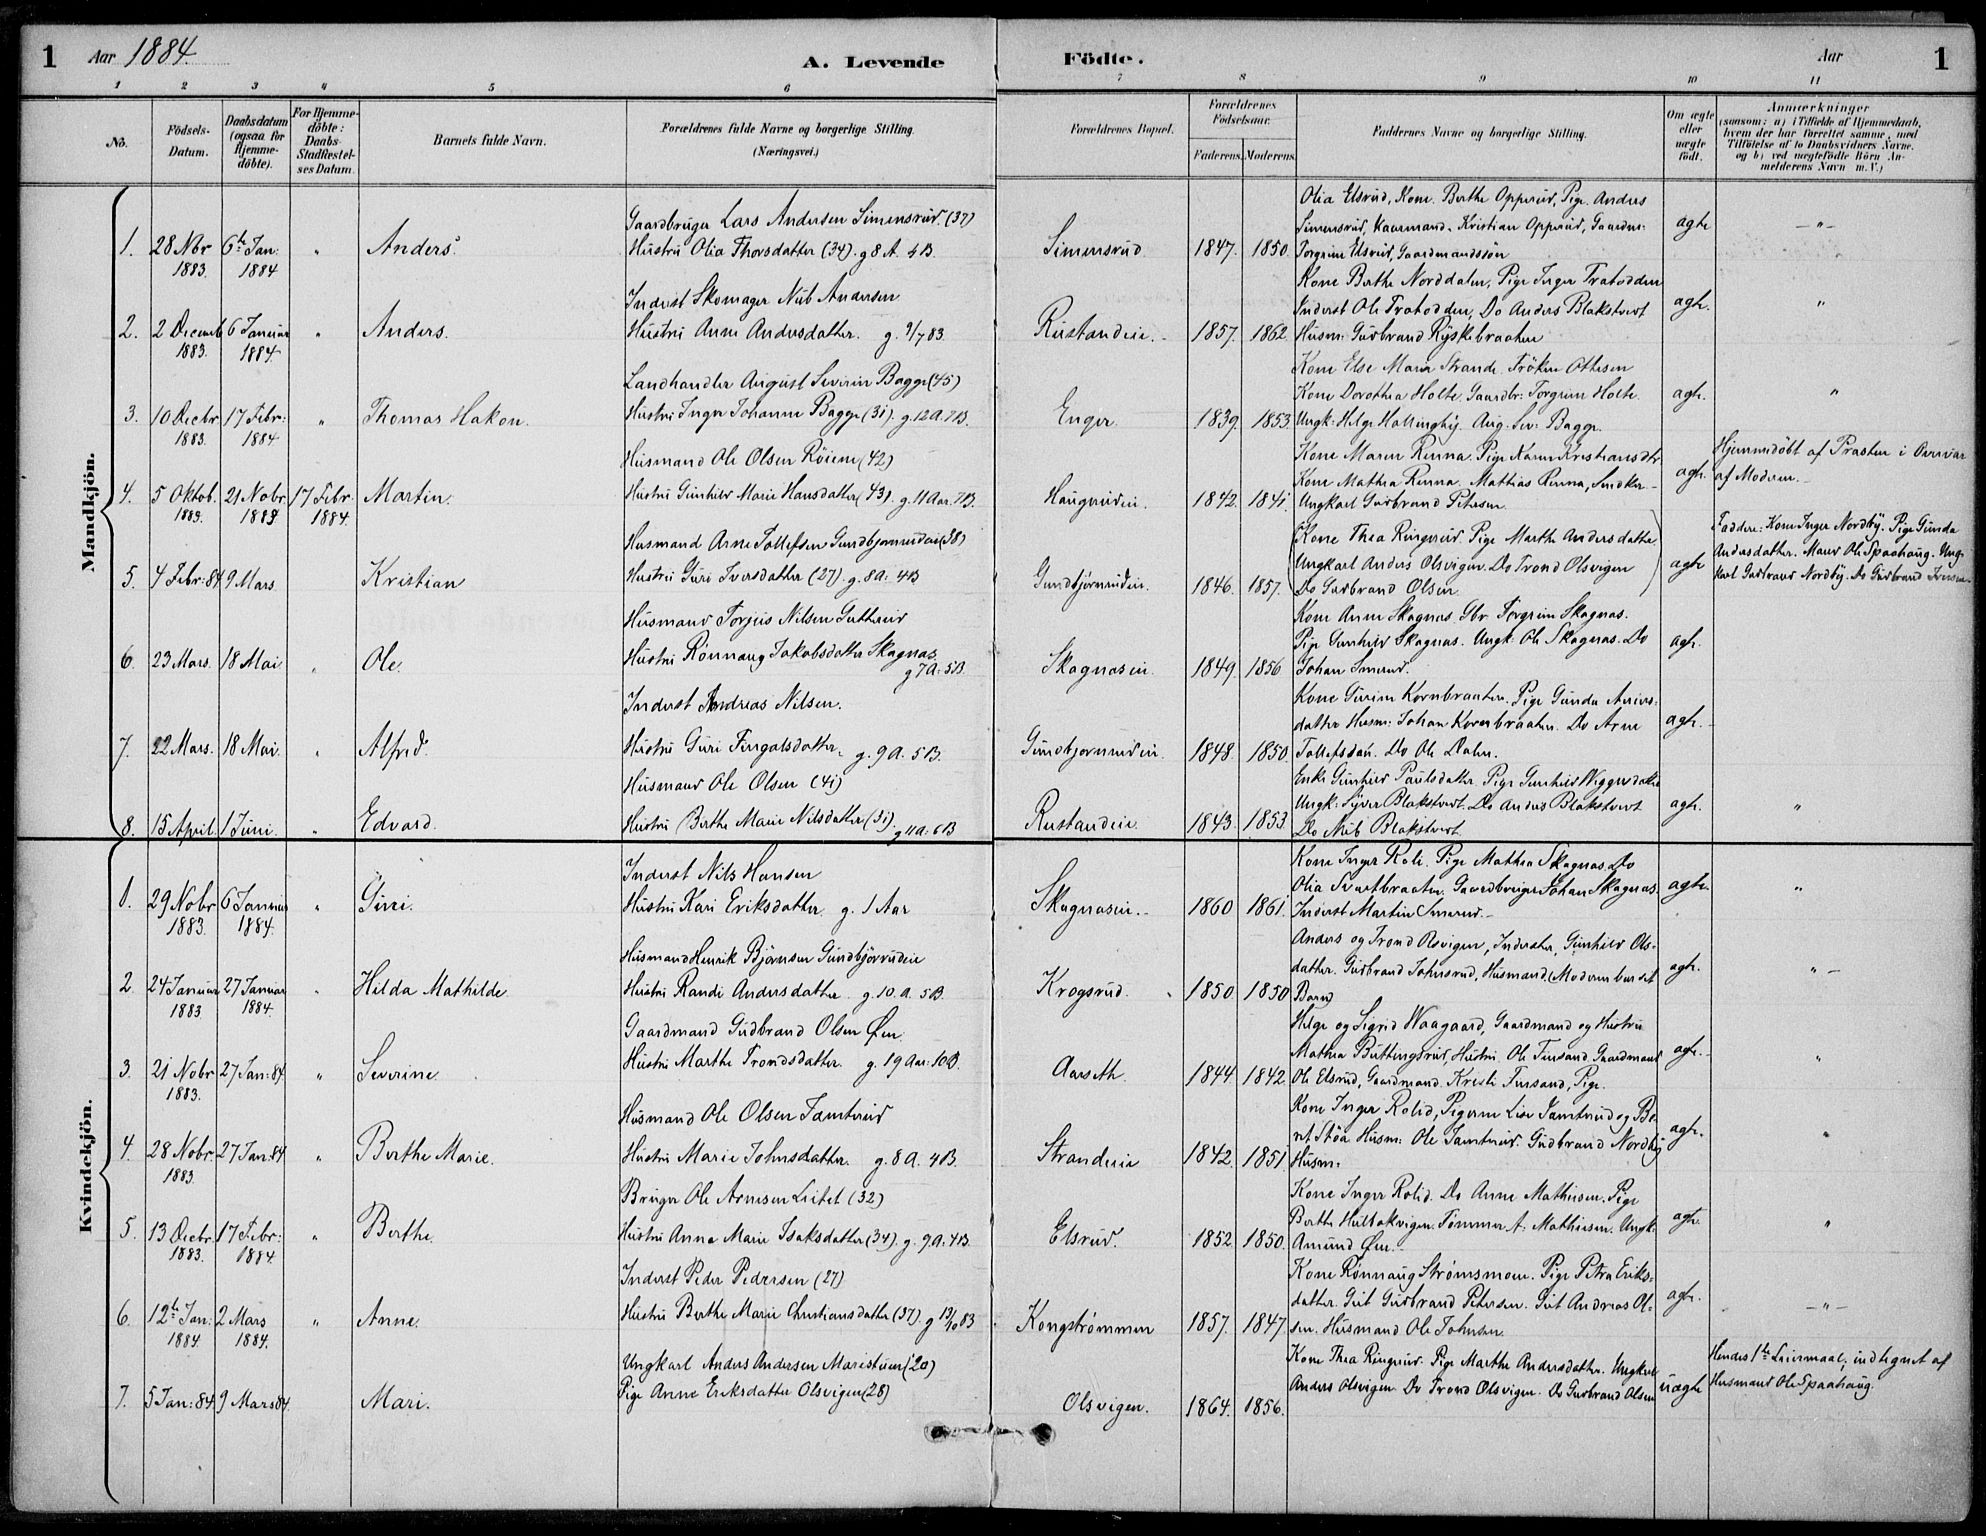 1 Aar 1884. A. Levende Födte. Aar 1
1 2 3 4 5 6 7 8 9 10 11
No.
Födsels-Datum.
Daabsdatum (ogsaa for Hjemme-döbte).
For Hjemme-döbte: Daabs-Stadfæstel-ses Datum.
Barnets fulde Navn.
Forældrenes fulde Navne og borgerlige Stilling.
(Næringsvei.)
Forældrenes Bopæl.
Forældrenes Födselsaar.
Faderens. Moderens.
Faddernes Navne og borgerlige Stilling.
Om ægte eller uægte födt.
Anmærkninger
(saasom: a) i Tilfælde af Hjemmedaab,
hvem der har forrettet samme, med
Tilföielse af to Daabsvidners Navne.
og b) ved uægtefödte Börn An-
melderens Navn m. V.)
Mandkjön.
Gaardbruger Lars Andersen Simensrud (37)
1. 28 Nbr 1883 6te Jan: 1884 " Anders. Hustru Olia Thorsdatter (34). g 8 A. 4B. Simensrud 1847. 1850.
Olia Elsrud, Kone. Berthe Opperud, Pige. Anders
Simensrud, Kaarmand. Kristian Opperud, Gaardm:
Torgrim Elsrud, Gaardmandssön
ægte —"—
Inderst Skomager Nub Andersen
2. 2 Decemb 1883. 6 Januar 1884 " Anders. Hustru Anne Andersdatter. g. 9/7 83. Rustandeie. 1857. 1862.
Kone Berthe Norddalen, Pige Inger Tratodden
Inderst Ole Tratodden, Do Anders Blakstvet
Husm: Gudbrand Ryskebraaten
ægte. "
Landhandler August Severin Bagge (45)
3. 10 Decbr 1883. 17 Febr: 1884 " Thomas Hakon. Hustru Inger Johanne Bagge (31). g. 12 A. 7B. Enger. 1839. 1853
Kone Else Marie Strande. Fröken Ottesen
Kone Dorothea Holte. Gaardbr: Torgrim Holte.
Ungk: Helge Hallingby. Aug. Sev: Bagge.
ægte. "
Husmand Ole Olsen Röiene (42)
4. 5 Oktob. 1883. 21 Nobr. 1883 17 Febr. 1884. Martin. Hustru Gunhild Marie Hansdatter (43). g. 11 Aar. 7B. Haugerudeie. 1842. 1841.
Kone Maren Rinna. Pige Karen Kristiansdtr
Kone Mathea Rinna. Mathias Rinna, Snedker
Ungkarl Gudbrand Petersen
ægte. Hjemmedöbt af Præsten i Overvær
af Moderen.
Husmand Arne Tollefsen Gundbjornrudeie (38)
5. 4 Febr: 84 9 Mars " Kristian Hustru Guri Iversdatter (27). g. 8 A: 4B Gundbjörnrudeie. 1846. 1857.
Kone Thea Ringerud. Pige Marthe Andersdatter.
Ungkarl Anders Olsvigen. Do Trond Olsvigen
Do Gudbrand Olsen
ægte Faddere: Kone Inger Nordby. Pige Gunda
Andersdatter. Maur Ole Spaahaug. Ung-
karl Gudbrand Nordby. Do Gudbrand Iversen
Husmand Torgius Nilsen Gutterud
6. 23 Mars. 18 Mai " Ole. Hustru Rönnaug Jakobsdatter Skagnæs. g 7 A: 5B. Skagnæseie. 1849. 1856
Kone Anne Skagnæs. Gbr Torgrim Skagnæs.
Pige Gunhild Skagnæs. Ungk: Ole Skagnæs. Do
Johan Smerud.
ægte.
Inderst Andreas Nilsen.
7. 22 Mars. 18 Mai. " Alfred. Hustru Guri Fingalsdatter. g. 9 A. 5B. Gundbjornrudeie. 1848. 1850.
Kone Gurine Kornbraaten. Pige Gunda Anders-
datter Husm: Johan Kornbraaten. Do Arne
Tollefsdan. Do Ole Dalen.
ægte.
Husmand Ole Olsen (41)
8. 15 April. 1 Juni. " Edvard. Hustru Berthe Marie Nilsdatter (31). g 11 A: 6B Rustandeie. 1843. 1853.
Enke Gunhild Paulsdatter. Pige Gunhild Viggersdatter
Ungk: Syver Blakstvet. Do Anders Blakstvet
Do Nub Blakstvet.
ægte. "
Kvindekjön.
Inderst Nils Hansen
1. 29 Nobr 1883. 6 Januar 1884. " Guri. Hustru Kari Eriksdatter. g. 1 Aar Skagnæseie. 1860 1861.
Kone Inger Roli. Pige Mathea Skagnæs. Do
Olia Svartbraaten. Gaardbruger Johan Skagnæs.
Inderst Martin Smerud.
ægte. "
Husmand Henrik Björnsen Gundbjörnrudeie
2. 24 Januar 1883 27 Januar 1884. " Hilda Mathilde Hustru Randi Andersdatter g. 10. A. 5B. Krogsrud. 1850 1850
Anders og Trond Olsvigen, Inderster, Gunhild Ols-
datter. Gudbrand Johnsrud, Husmand. Moderen bar sit
Barn
ægte. "—
Gaardmand Gudbrand Olsen Øen
3. 21 Nobr 1883. 27 Jan: 84 " Severine. Hustru Marthe Trondsdatter. g. 19 Aar: 10B. Aaseth. 1844. 1842.
Helge og Sigrid Waagaard, Gaardmand og Hustru
Mathea Buttingsrud, Hustru. Ole Finsand Gaardmand
Ole Elsrud, Gaardmand. Kristi Finsand, Pige.
ægte. "
Husmand Ole Olsen Tamterud
4. 28 Nobr. 1883. 27 Jan: 84 " Berthe Marie. Hustru Marie Johnsdatter. g. 8 A. 4B. Strandeie 1842. 1851
Kone Inger Rolid, Pigerne Lise Jamtrud og Be-
rit Stöa Husm: Ole Tamterud. Gudbrand Nordby
Husm:
ægte. "
Bruger Ole Arnesen Leitet (32)
5. 13 Decbr. 1883. 17 Febr: 1884. " Berthe. Hustru Anne Marie Isaksdatter (34). g. 9. A: 4B Elsrud. 1852 1850.
Kone Inger Rolid. Do Anne Mathiesen. Pige
Berthe Hulbakvigen. Tømmer A: Mathiesen. Ungk:
Amund Øen.
ægte. "
Inderst Peder Pedersen (27)
6. 12te Jan: 1884. 2 Mars 1884. " Anne. Hustru Berthe Marie Christiansdatter (37). g 13/10 83 Kongstrømmen 1857. 1847.
Kone Rønnaug Strømsmoen. Pige Petra Eriks-
datter. Gut Gudbrand Petersen. Gut Andreas Ol-
sen. Husmand Ole Johnsen.
ægte. —"—
Ungkarl Anders Andersen Maristuen (20)
7. 5 Jan: 84 9 Mars 84. Mari. Pige Anne Eriksdatter Olsvigen (28) Olsvigen. 1864. 1856.
Kone Thea Ringerud. Pige Marthe Andersdatter. Ungkarl
Anders Olsvigen. Do Trond Olsvigen. Do Gudbrand Olsen
uægte Hendes 1te Leiermaal; indtegnet af
Husmand Ole Spaahaug.